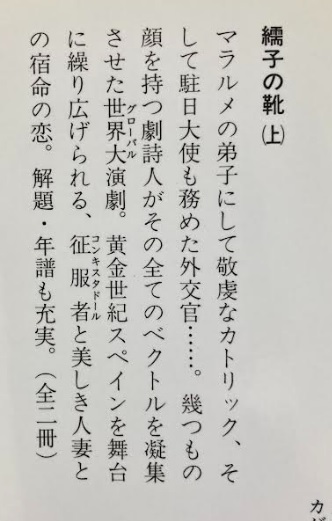 繻子の靴(上)
マラルメの弟子にして敬虔なカトリック、そ
して駐日大使も務めた外交官……。幾つもの
顔を持つ劇詩人がその全てのベクトルを凝集
させた世界大演劇。黄金世紀スペインを舞台
グローバル
に繰り広げられる、征服者と美しき人妻と
コンキスタドール
の宿命の恋。解題・年譜も充実。(全二冊)
カ